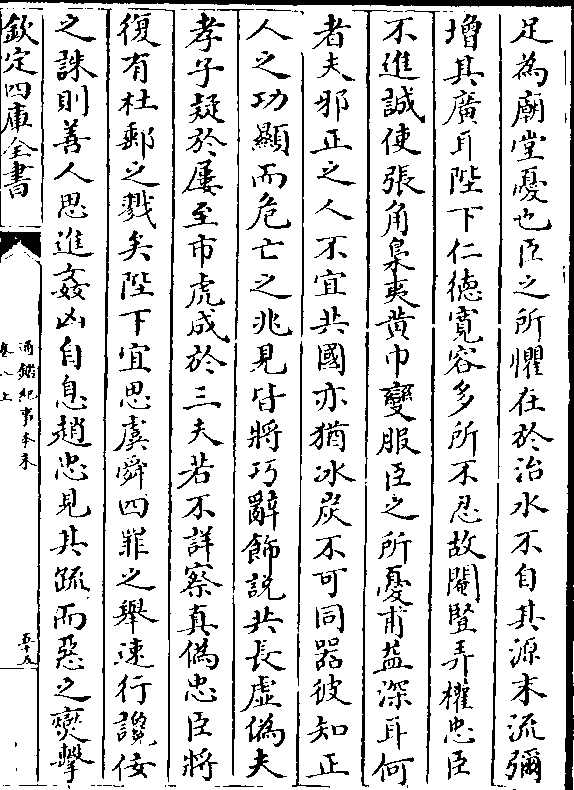 足為廟堂憂也臣之所懼在於治水不自其源末流彌
増其廣耳陛下仁徳寛容多所不忍故閹豎弄權忠臣
不進誠使張角梟夷黄巾變服臣之所憂甫益深耳何
者夫邪正之人不宜共國亦猶冰炭不可同器彼知正
人之功顯而危亡之兆見皆將巧辭飾說共長虚偽夫
孝子疑於屢至市虎成於三夫若不詳察真偽忠臣將
復有杜郵之戮矣陛下宜思虞舜四罪之舉速行讒佞
之誅則善人思進姦凶自息趙忠見其疏而惡之燮擊
欽定四庫全書
通鑑紀事本末
卷八上
五十九